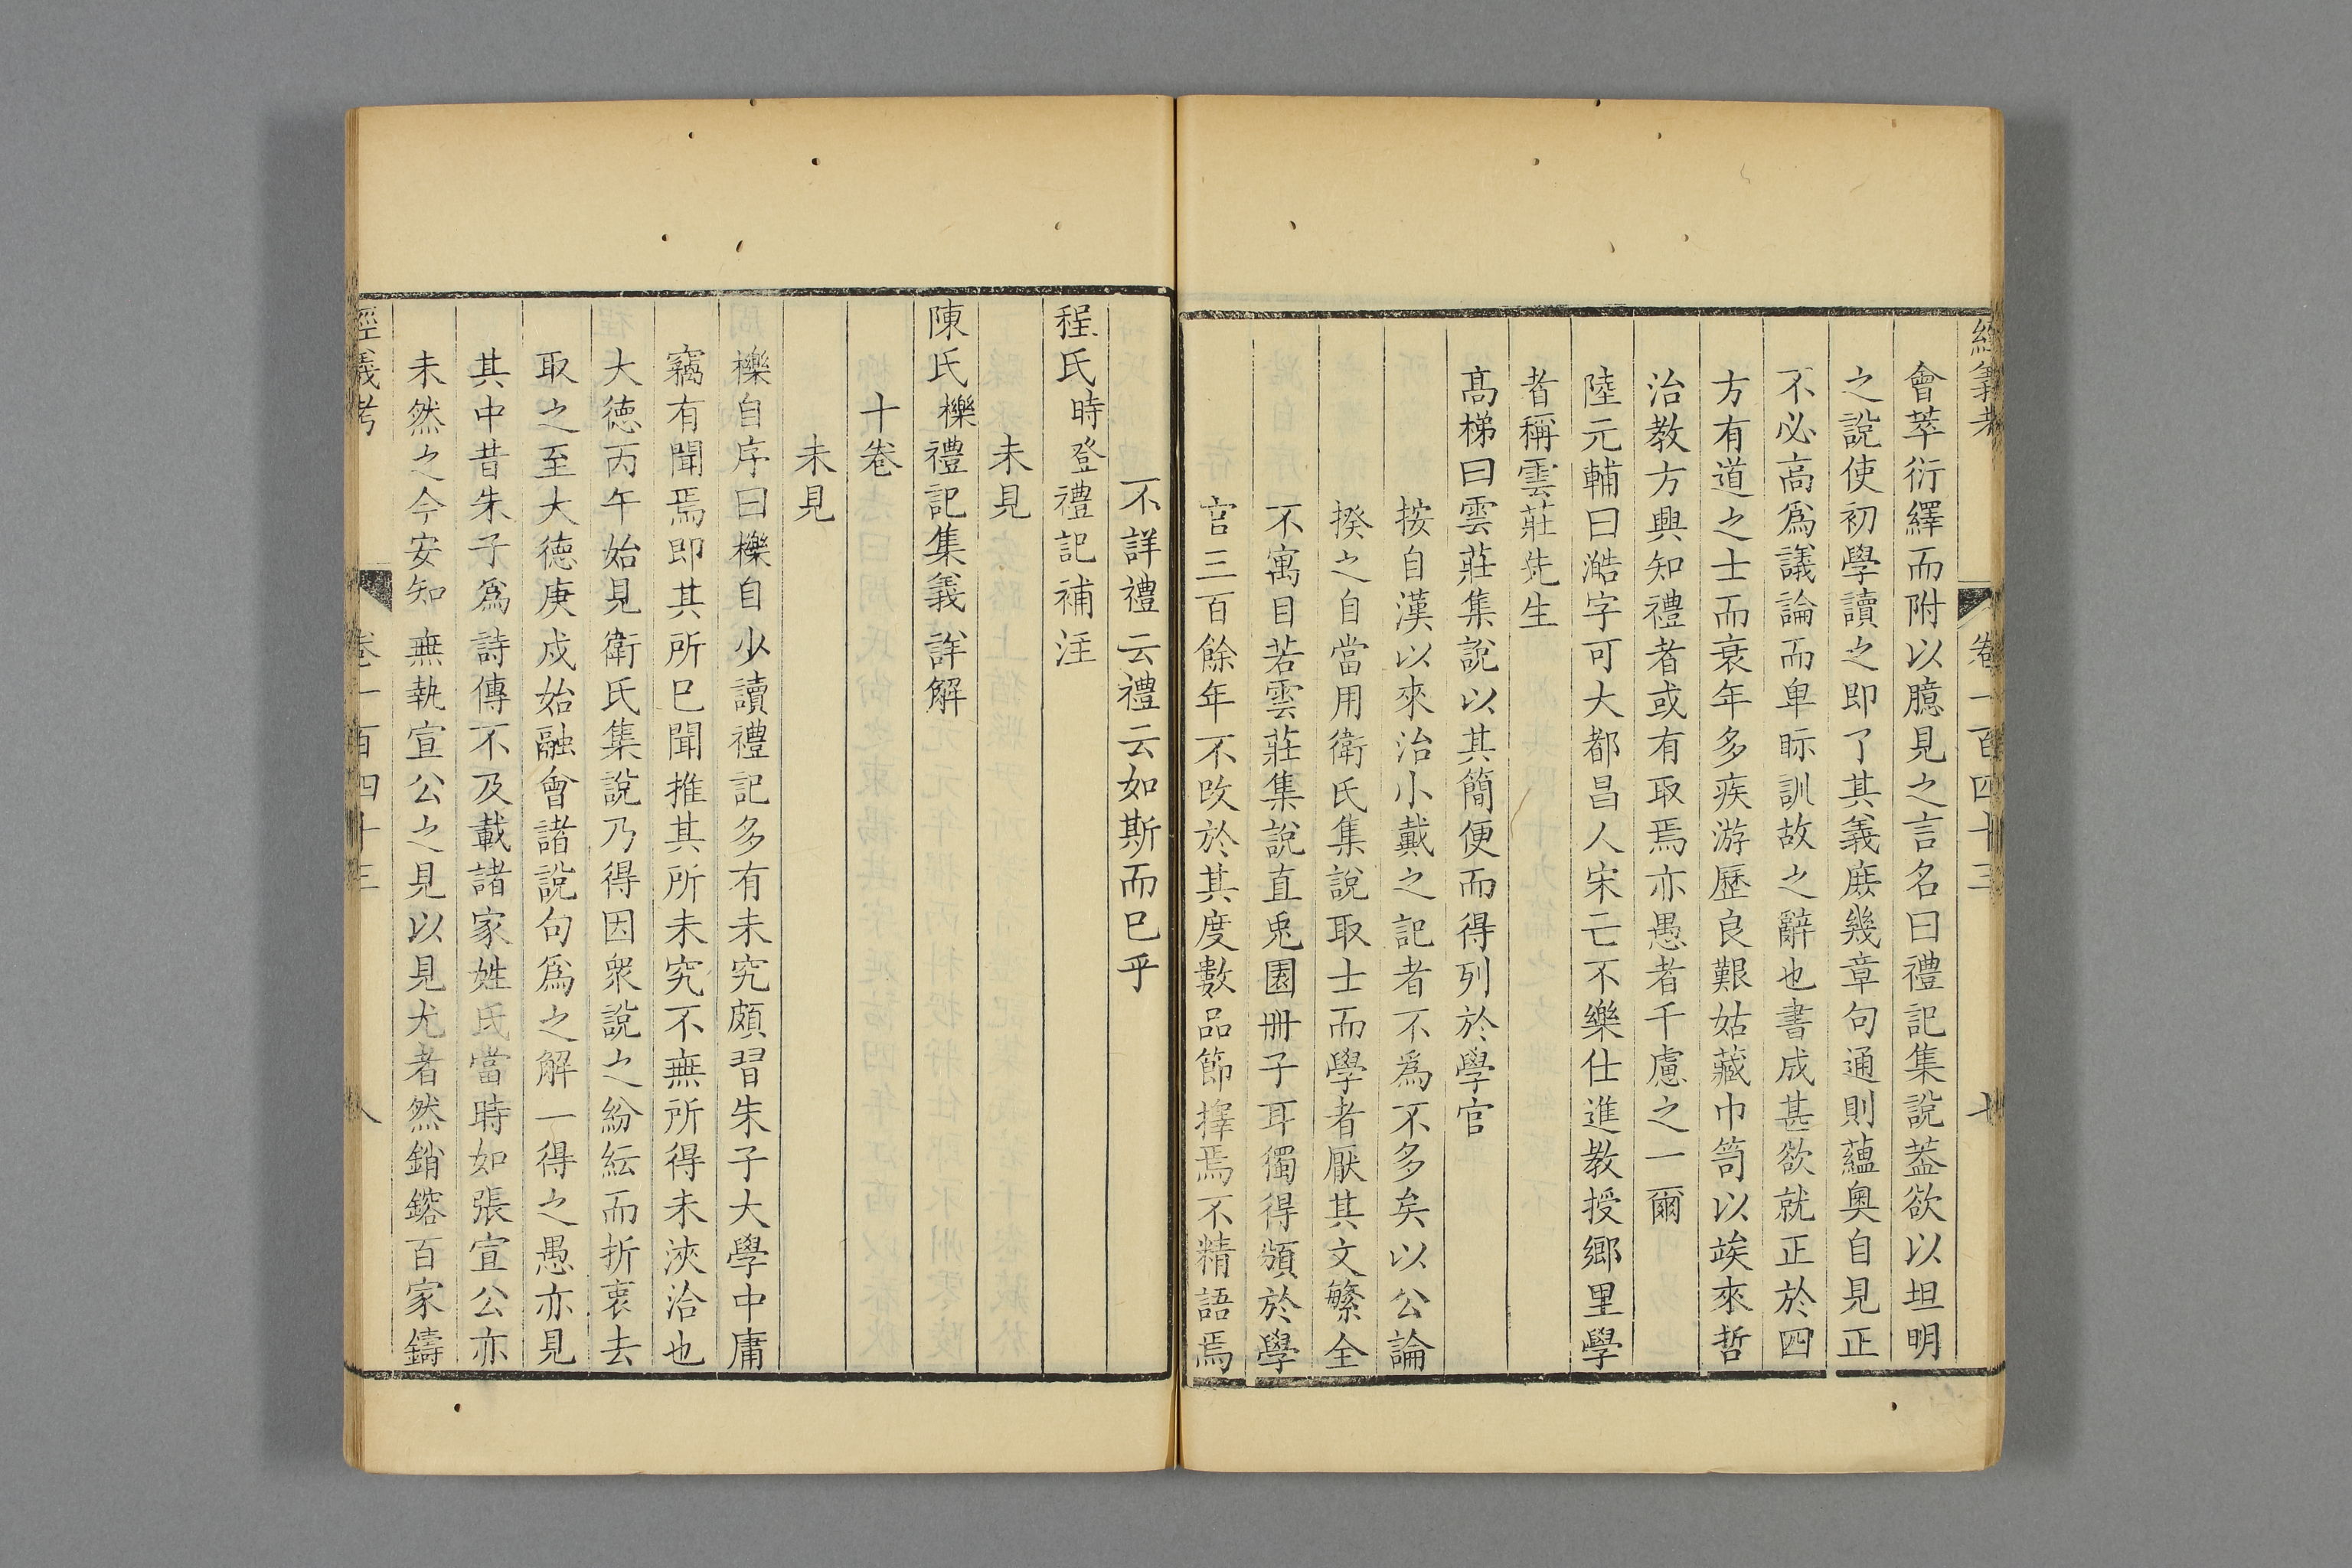 經義考 卷一百四十三 七
會萃衍繹而附以臆見之言名曰禮記集說葢欲以坦明
之說使初學讀之即了其義庻幾章句通則蘊奧自見正
不必高爲議論而卑眎訓故之辭也書成甚欲就正於四
方有道之士而衰年多疾游歷良艱姑藏巾笥以竢來哲
治教方興知禮者或有取焉亦愚者千慮之一爾
陸元輔曰澔字可大都昌人宋亡不樂仕進教授鄉里學
者稱雲莊先生
髙梯曰雲莊集說以其簡便而得列於學官
按自漢以來治小戴之記者不爲不多矣以公論
揆之自當用衛氏集說取士而學者厭其文繁全
不寓目若雲莊集說直兎園冊子耳獨得頒於學
官三百餘年不改於其度數品節擇焉不精語焉
不詳禮云禮云如斯而巳乎
程氏時登禮記補注
未見
陳氏櫟禮記集義詳解
十卷
未見
櫟自序曰櫟自少讀禮記多有未究頗習朱子大學中庸
竊有聞焉即其所巳聞推其所未究不無所得未浹洽也
大徳丙午始見衛氏集說乃得因衆說之紛紜而折衷去
取之至大徳庚戍始融會諸說句爲之解一得之愚亦見
其中昔朱子爲詩傳不及載諸家姓氏當時如張宣公亦
未然之今安知無執宣公之見以見尤者然銷鎔百家鑄
經義考 卷一百四十三 八